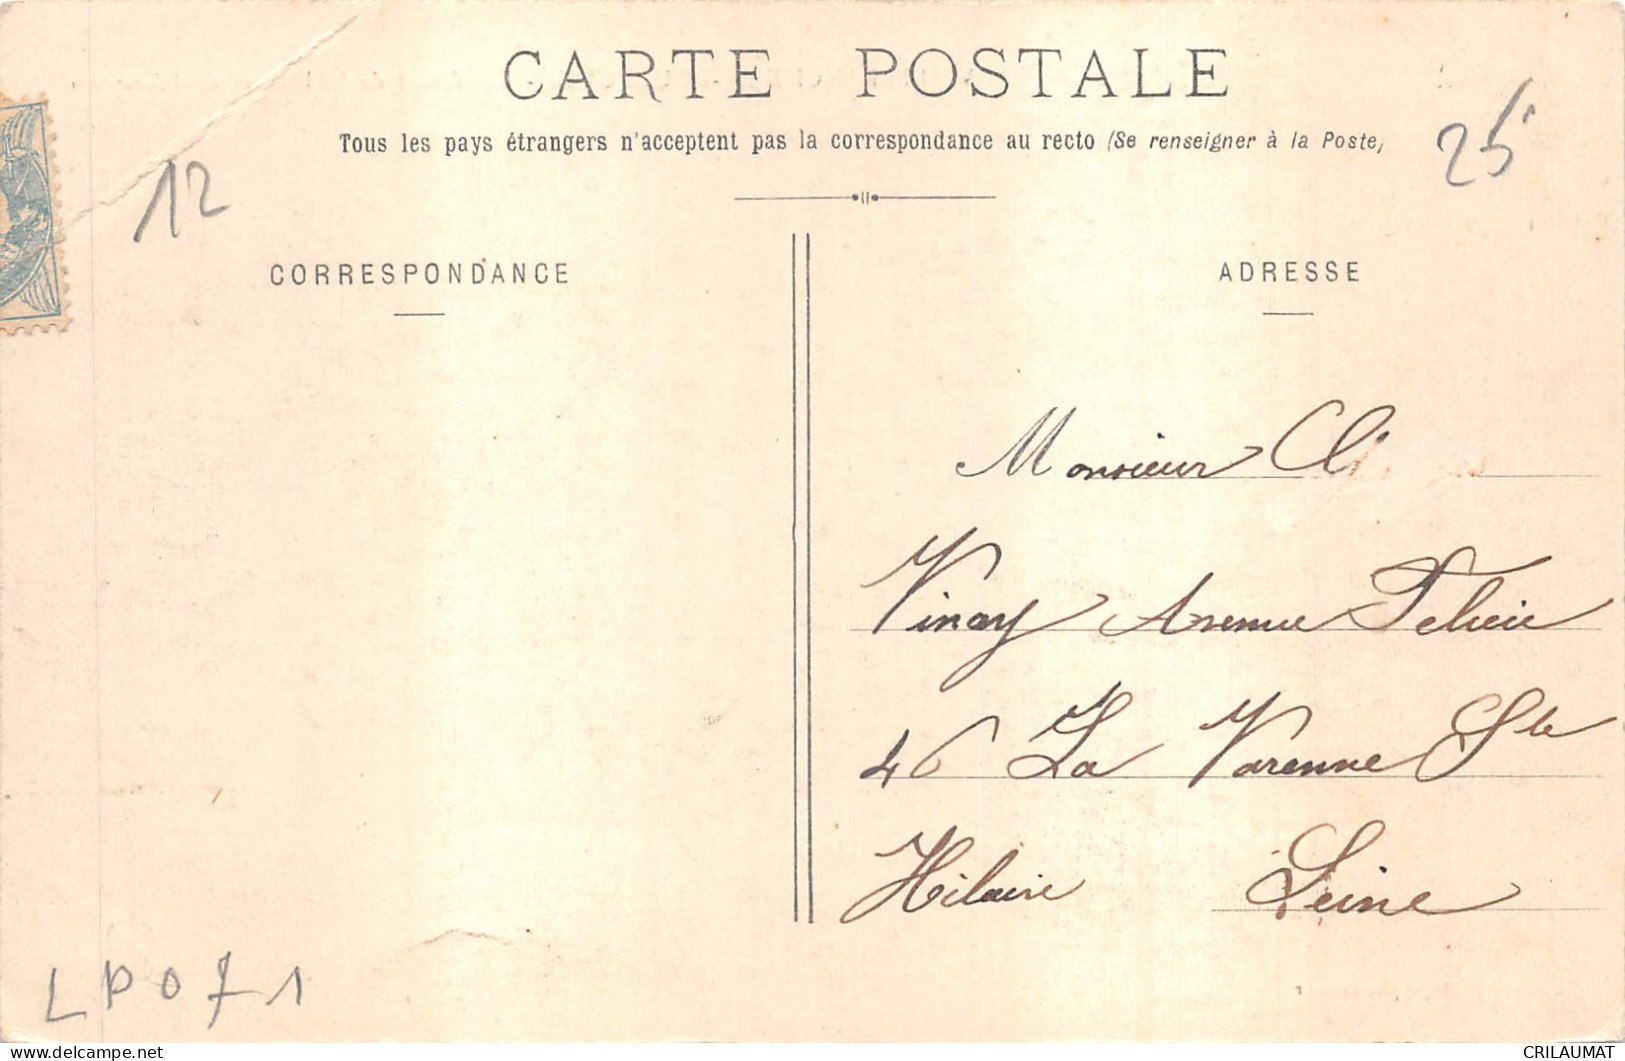 CARTE POSTALE
Tous les pays étrangers n'acceptent pas la correspondance au recto (Se renseigner à la Poste)
12
25
CORRESPONDANCE
ADRESSE
Monsieur
Vinay Avenue Felicie
46 La Varenne Ste
Hilaire Seine
LP071
CRILAUMAT